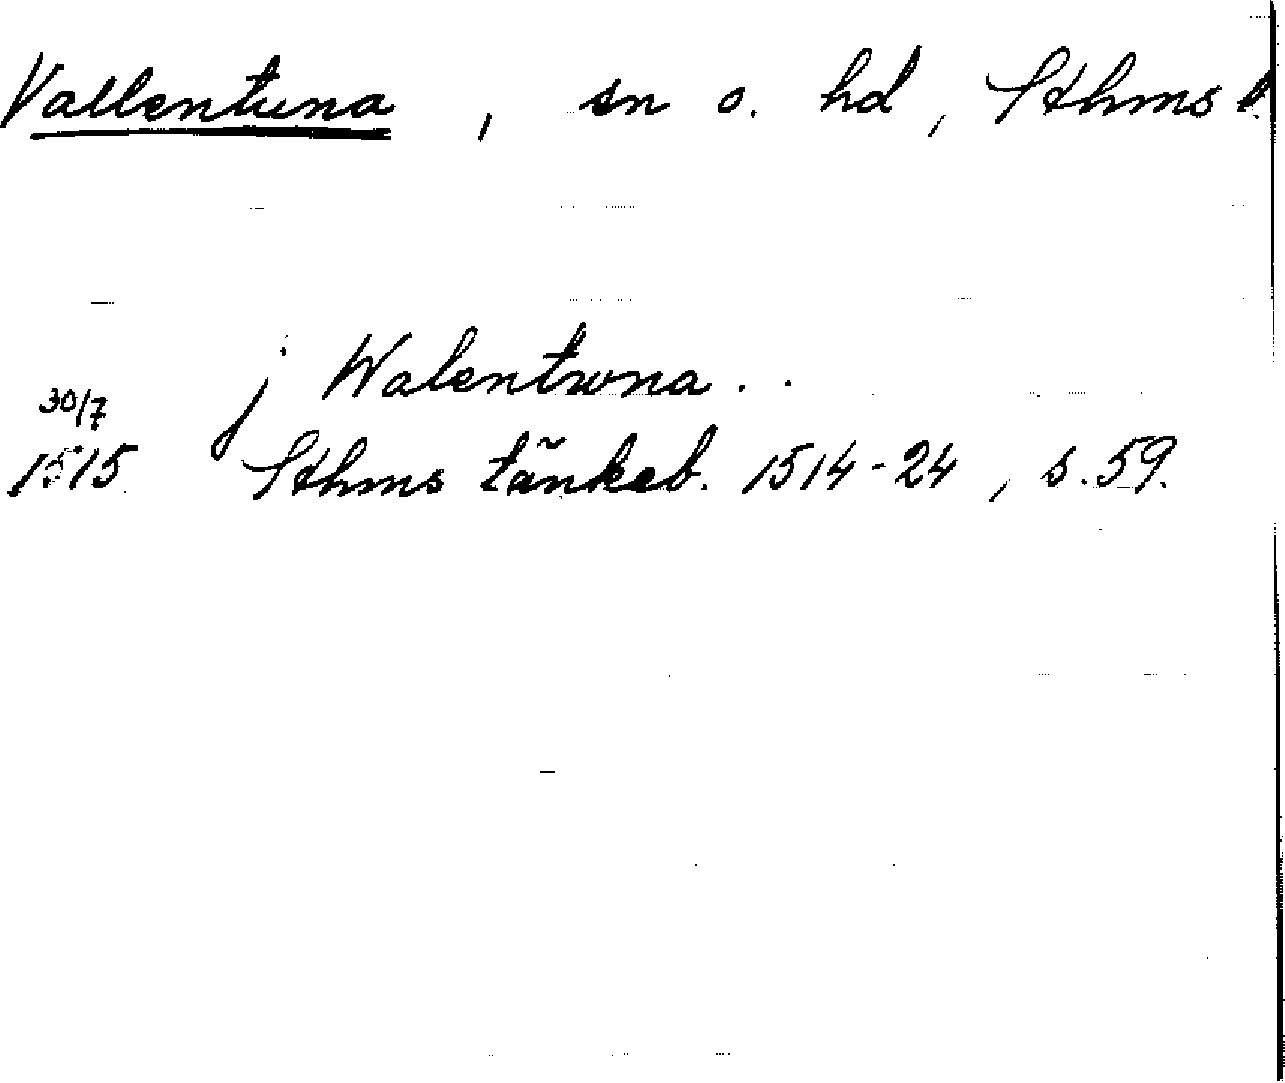 Vallentuna, sn o. hd, Sthms l.
j Walentwna..
30/7
1515 Sthms tänkeb. 1514-24, s. 59.